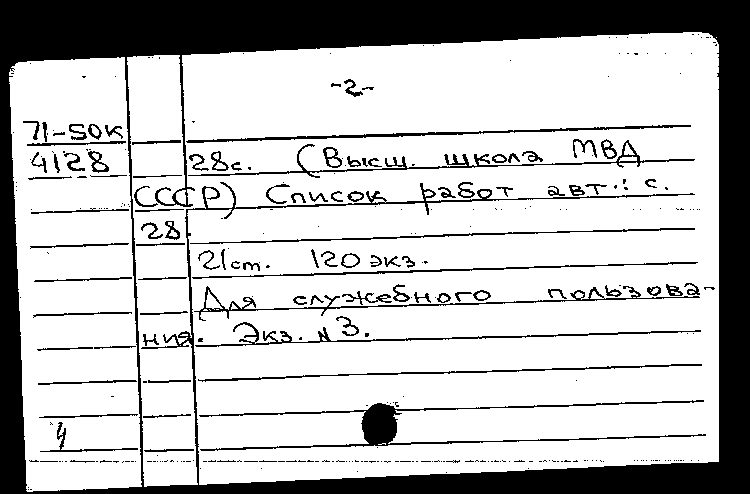 -2-
71-50к
4128 28с. (Высш. школа МВД
СССР) Список работ авт.: с.
28.
21 ст. 120 экз.
Для служебного пользова-
ния. Экз. N 3.